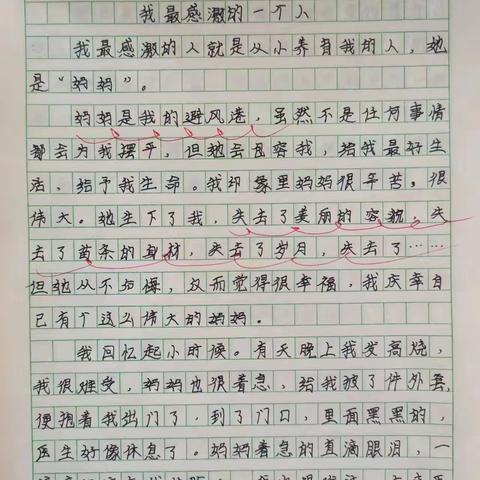 我最感激的一个人
我最感激的人就是从小养育我的人，她
是“妈妈”。
妈妈是我的避风港，虽然不是任何事情
都会为我摆平，但她会包容我，给我最好生
活，给予我生命。我印象里妈妈很辛苦，很
伟大。她生下了我，失去了美丽的容貌，失
去了苗条的身材，失去了岁月，失去了……
但她从不后悔，反而觉得很幸福，我庆幸自
己有个这么伟大的妈妈。
我回忆起小时候。有天晚上我发高烧，
我很难受，妈妈也很着急，给我披了件外套，
便抱着我出门了，到了门口，里面黑黑的，
医生好像休息了。妈妈着急的直滴眼泪，一